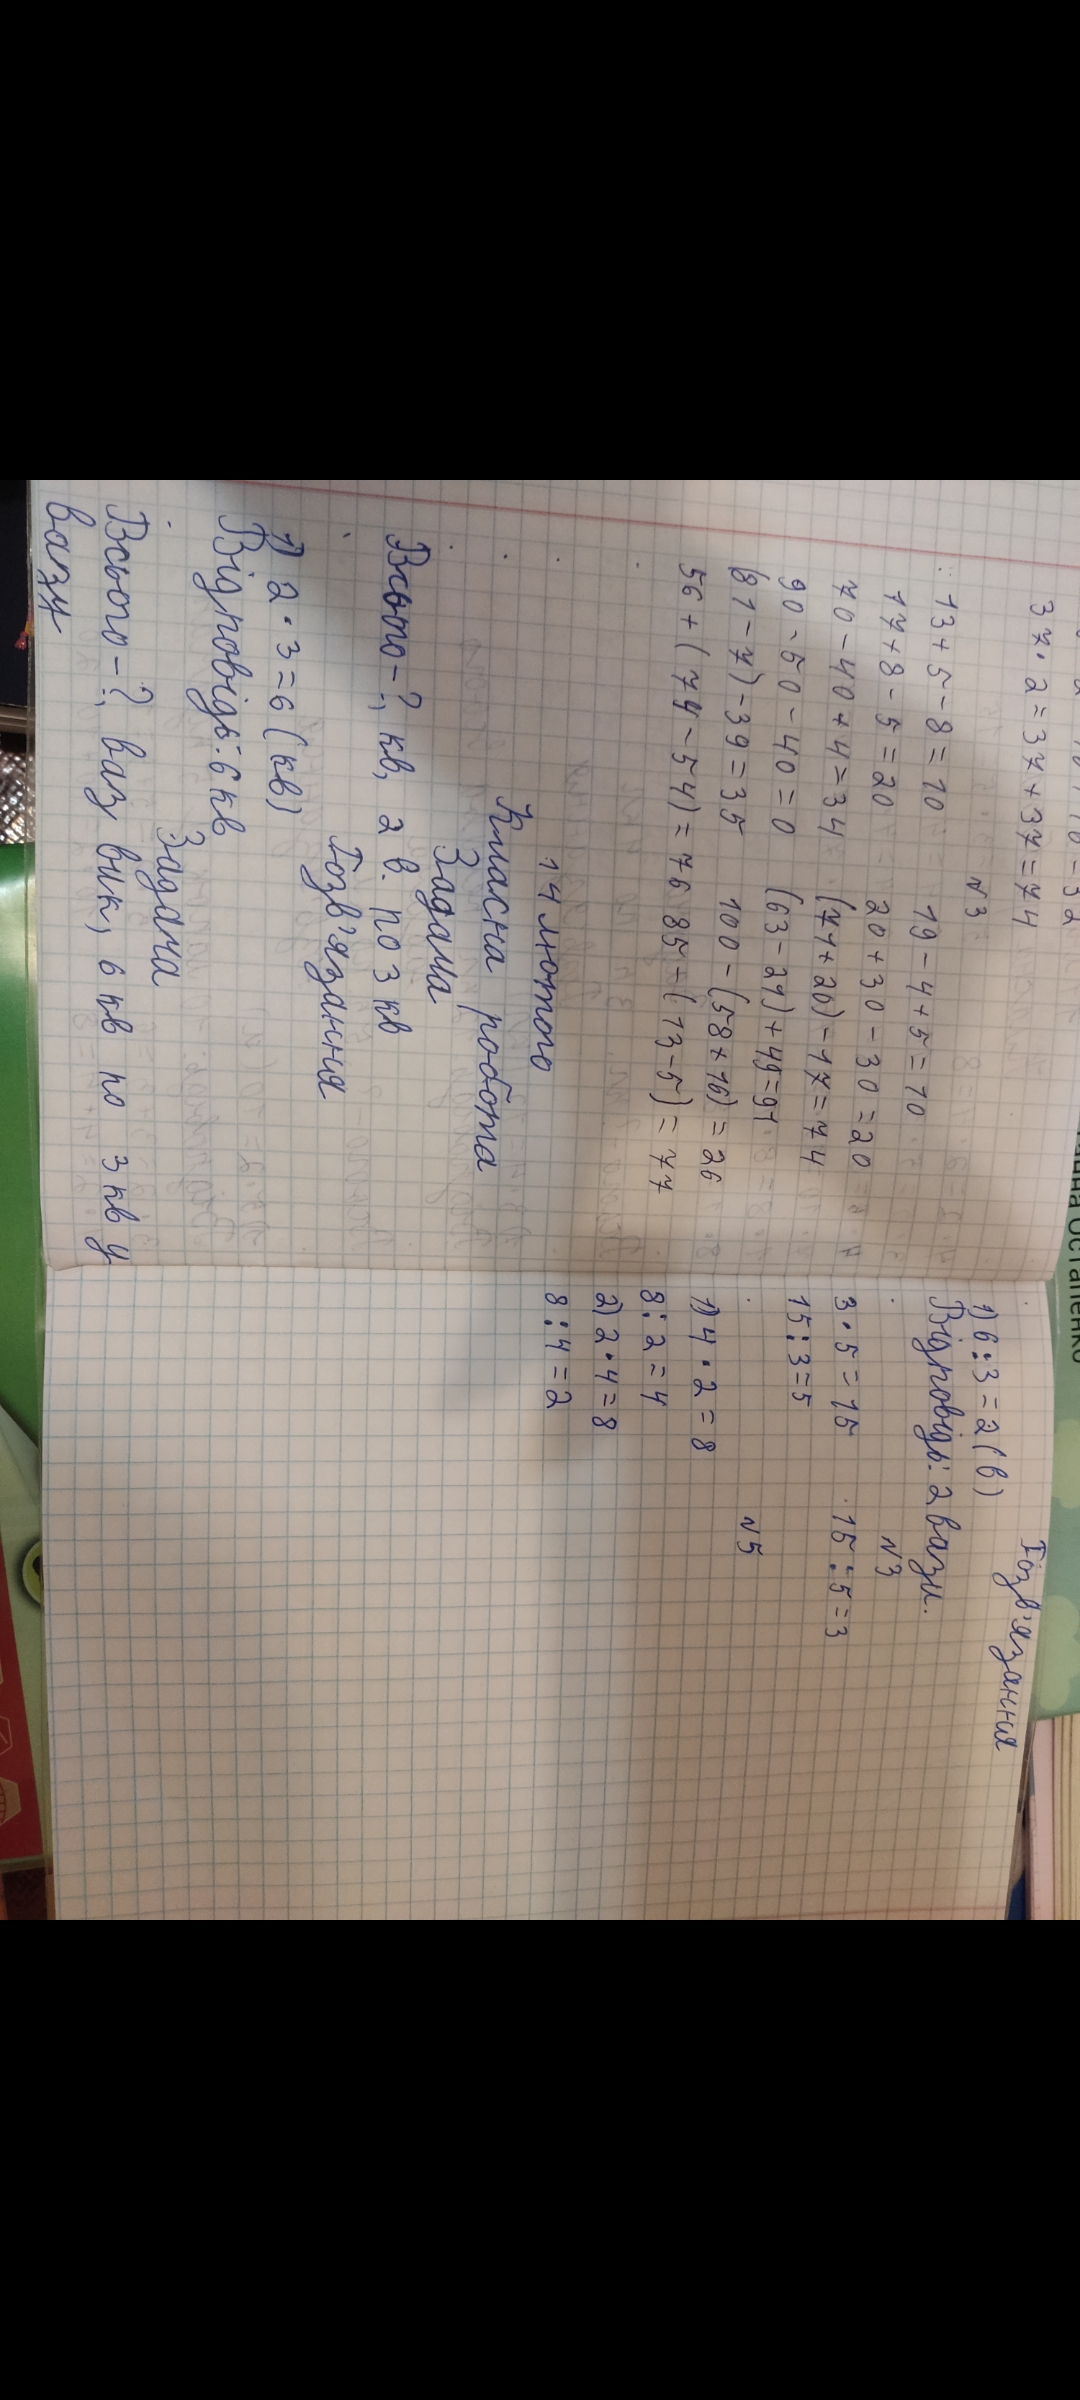 37·2=37+37=74
N3
13+5-8=10 19-4+5=10
17+8-5=20 20+30-30=20
70-40+4=34 (71+20)-17=74
90-50-40=0 (63-21)+49=91
(81-7)-39=35 100-(58+16)=26
56+(74-54)=76 85-(13-5)=77
14 лютого
Класна робота
Задача
Всього-?, кв, 2 в. по 3 кв
Розв'язання
1) 2·3=6(кв)
Відповідь: 6 кв
Задача
Всього-?, ваз вик, 6 кв по 3 кв у
вазу
Розв'язання
1) 6:3=2(в)
Відповідь: 2 вази.
N3
3·5=15 15:5=3
15:3=5
N5
1) 4·2=8
8:2=4
2) 2·4=8
8:4=2
ОСТАПЕНКО